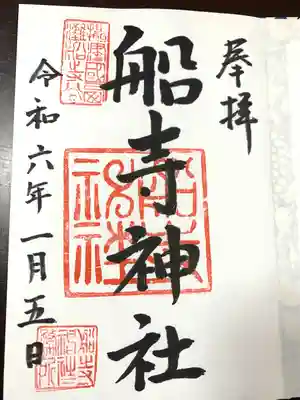 奉拝
船寺神社
令和六年一月五日